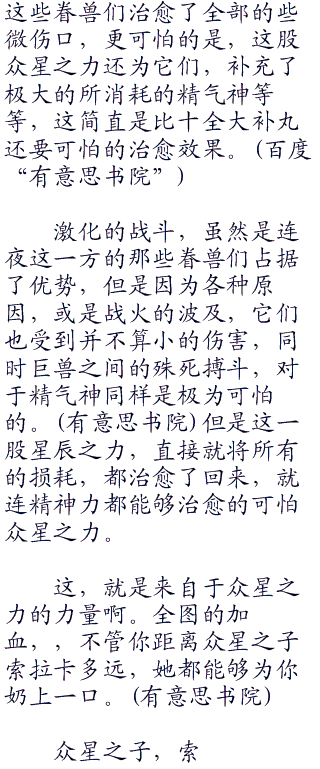 这些眷兽们治愈了全部的些
微伤口，更可怕的是，这股
众星之力还为它们，补充了
极大的所消耗的精气神等
等，这简直是比十全大补丸
还要可怕的治愈效果。(百度
“有意思书院”)
激化的战斗，虽然是连
夜这一方的那些眷兽们占据
了优势，但是因为各种原
因，或是战火的波及，它们
也受到并不算小的伤害，同
时巨兽之间的殊死搏斗，对
于精气神同样是极为可怕
的。(有意思书院)但是这一
股星辰之力，直接就将所有
的损耗，都治愈了回来，就
连精神力都能够治愈的可怕
众星之力。
这，就是来自于众星之
力的力量啊。全图的加
血，，不管你距离众星之子
索拉卡多远，她都能够为你
奶上一口。(有意思书院)
众星之子，索